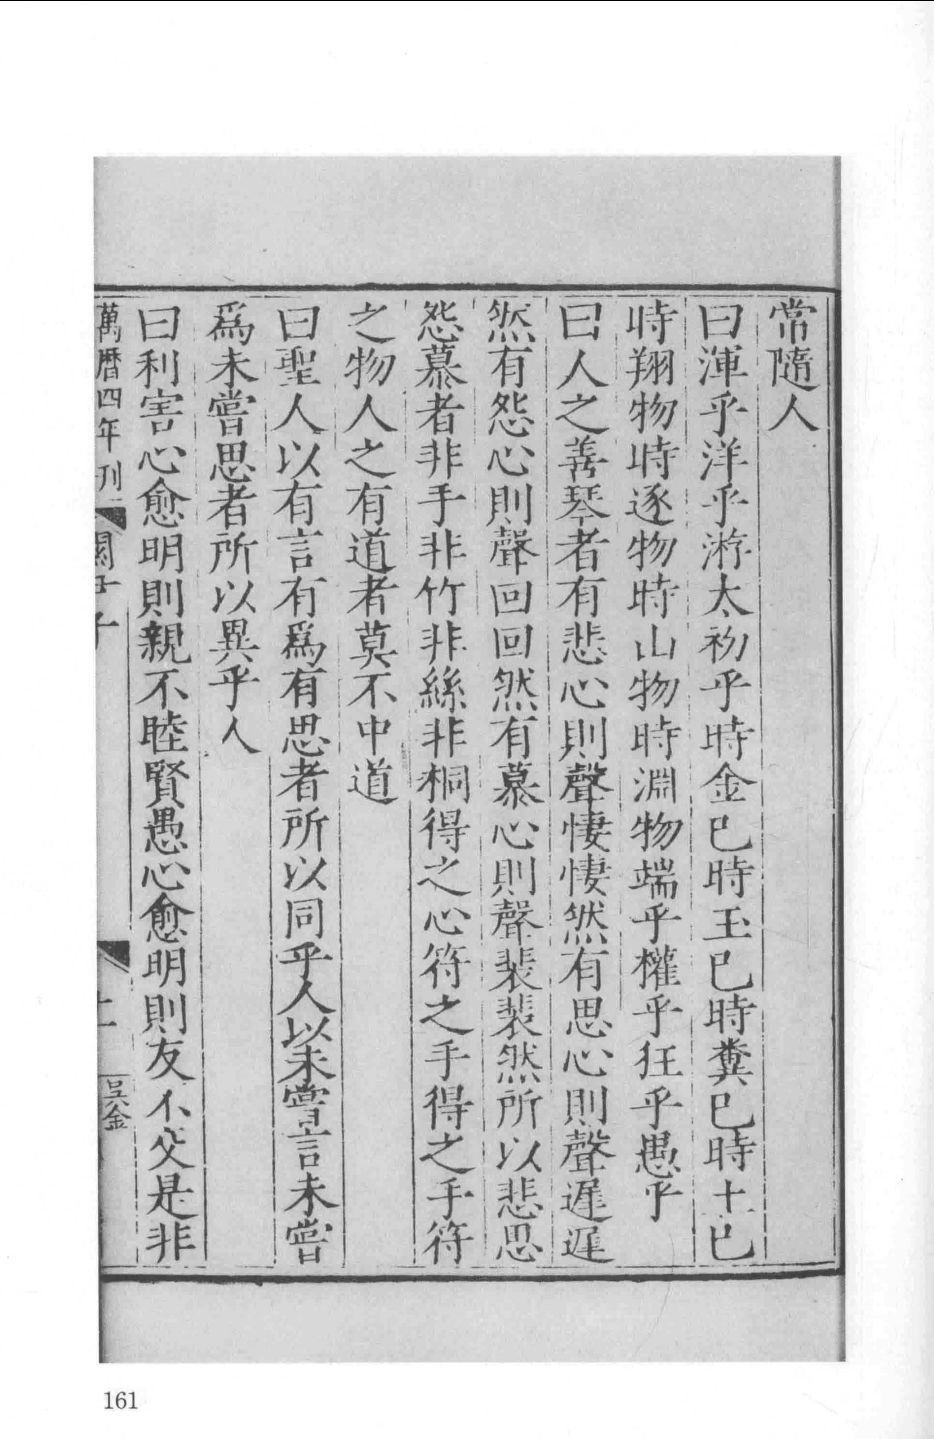 常隨人
曰渾乎洋乎游太初乎時金已時玉已時糞已時土已
時翔物時逐物時山物時淵物端乎權乎狂乎愚乎
曰人之善琴者有悲心則聲悽悽然有思心則聲遲遲
然有怨心則聲回回然有慕心則聲裴裴然所以悲思
怨慕者非手非竹非絲非桐得之心符之手得之手符
之物人之有道者莫不中道
曰聖人以有言有爲有思者所以同乎人以未嘗言未嘗
爲未嘗思者所以異乎人
曰利害心愈明則親不睦賢愚心愈明則友不交是非
萬曆四年刊
吳金
161